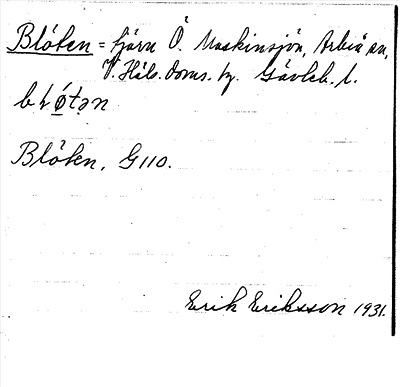 Blöten = tjärn Ö. Maskinsjön, Arbrå sn,
V. Häls. doms. hg. Gävleb. l.
Blöten, G110.
Erik Eriksson 1931.